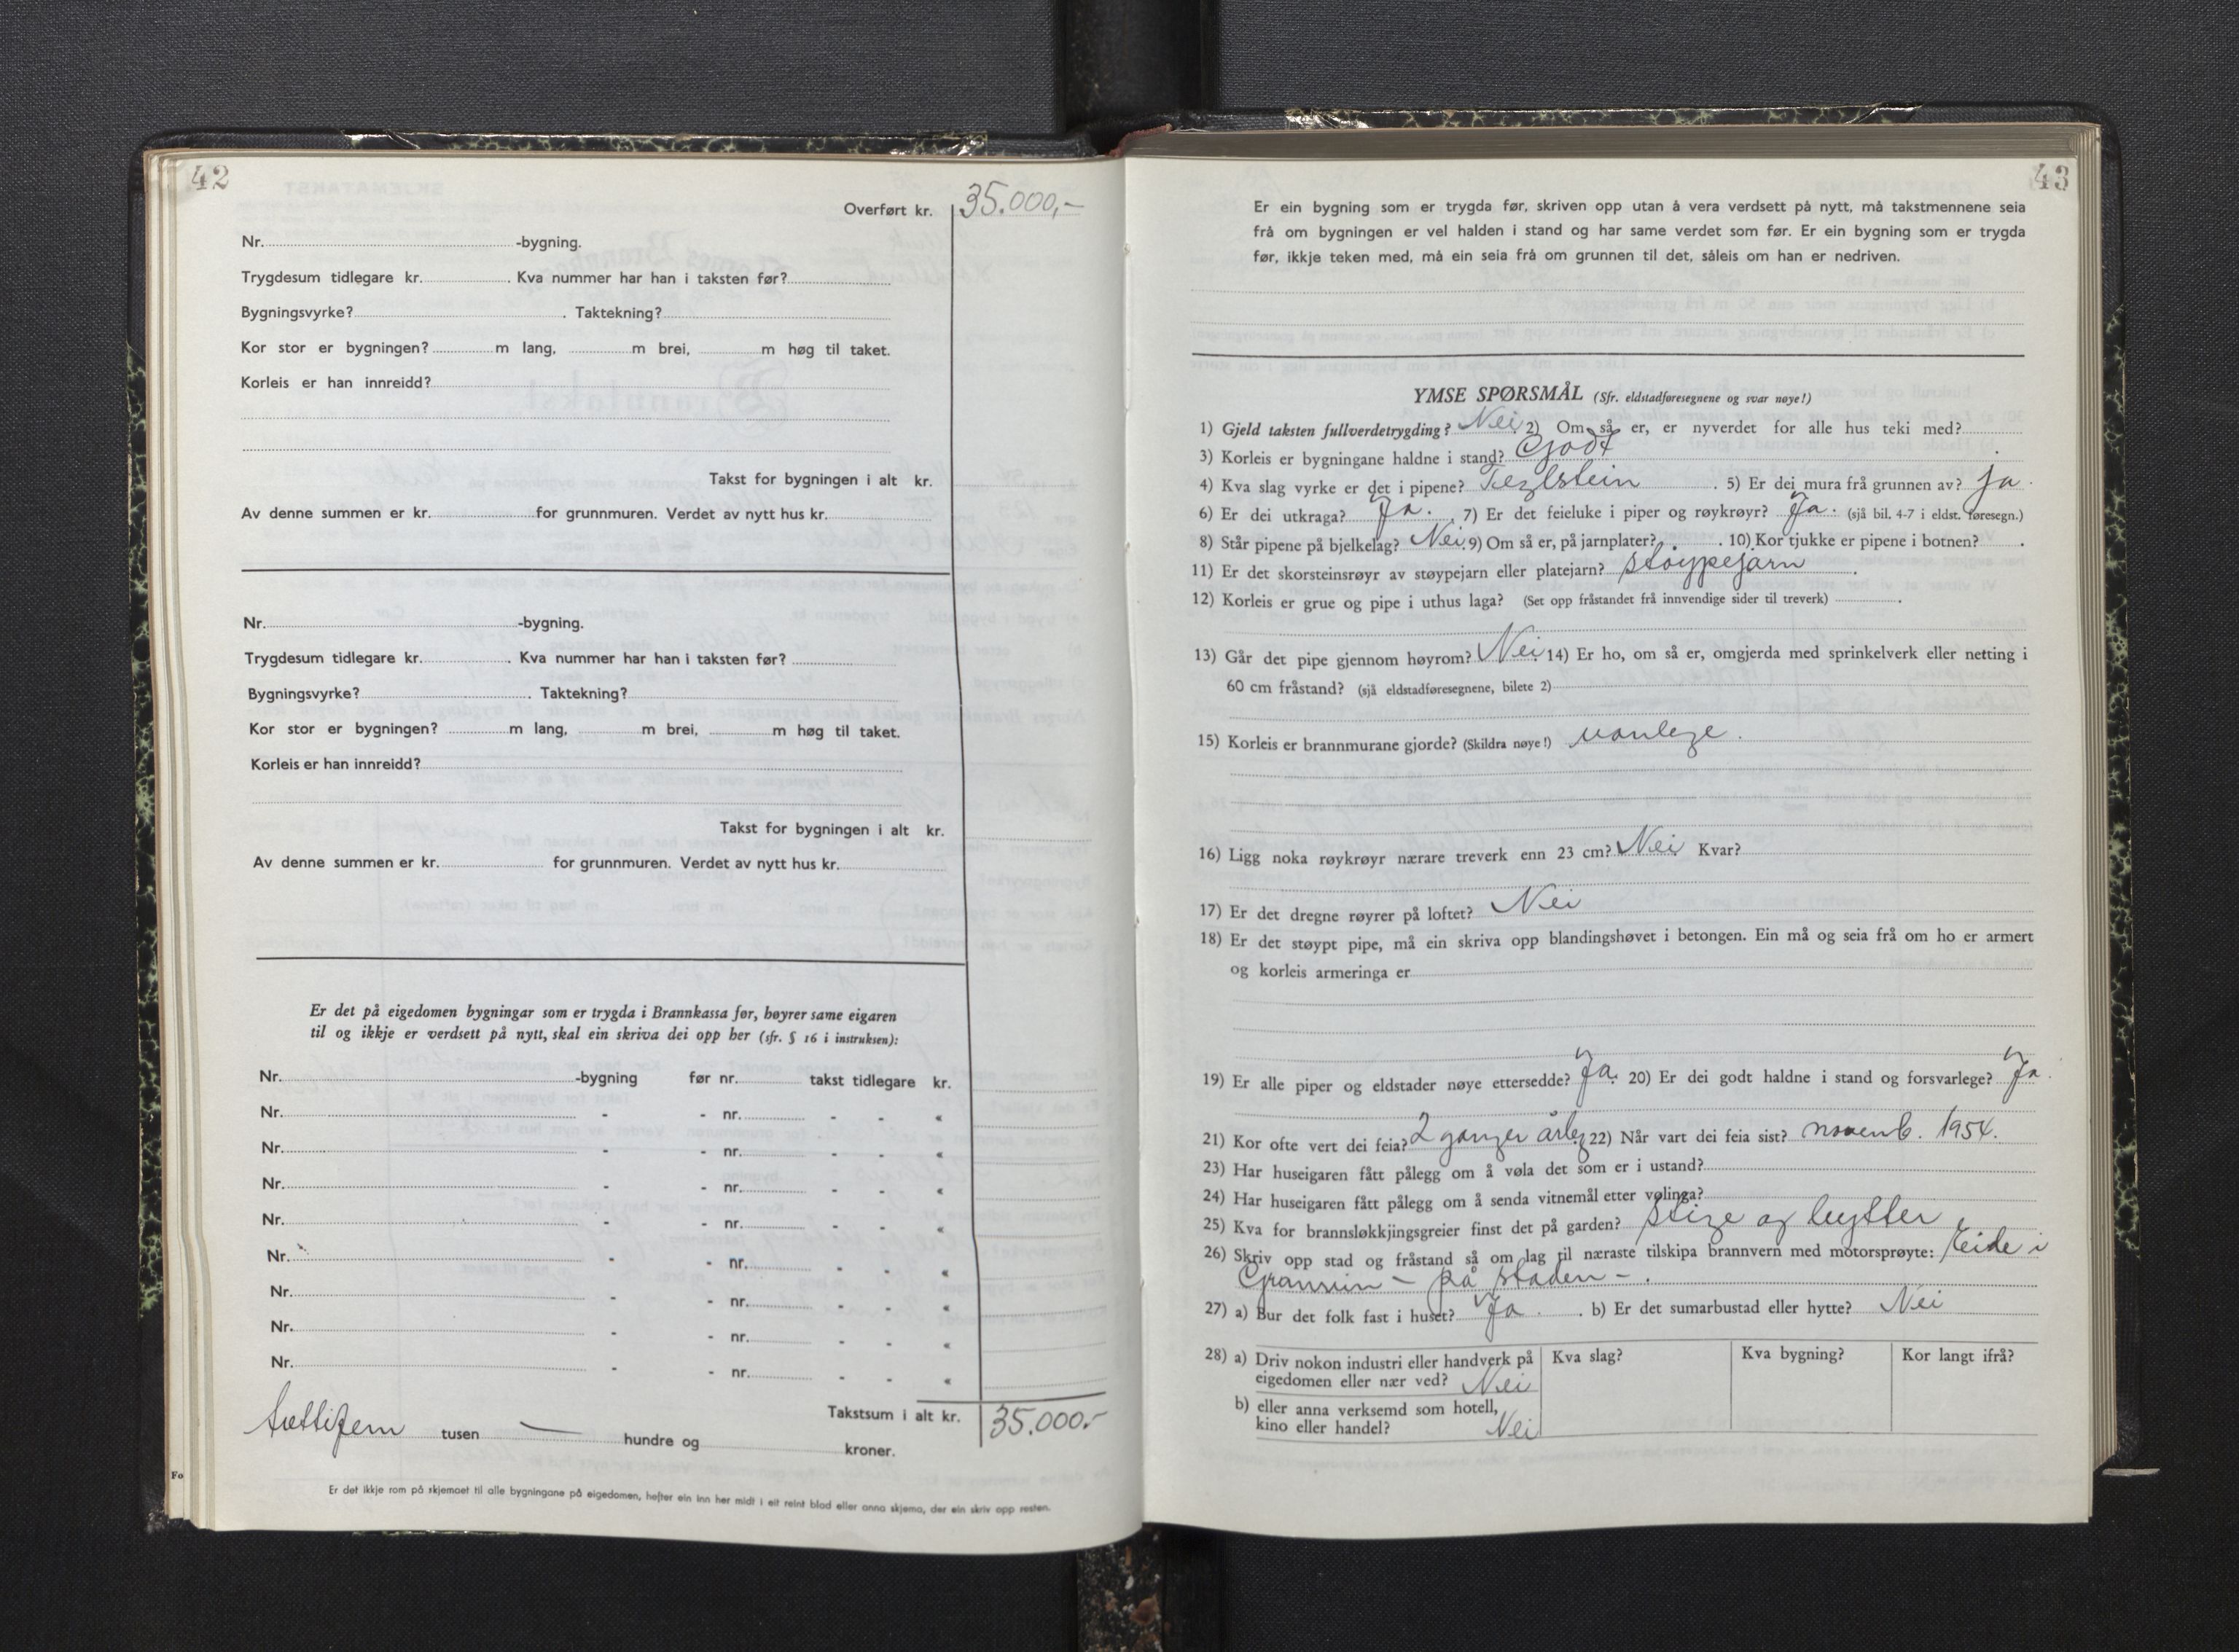 42
Overført kr. 35.000,-
Nr. -bygning.
Trygdesum tidlegare kr. . Kva nummer har han i taksten før?
Bygningsvyrke? . Taktekning?
Kor stor er bygningen? m lang, m brei, m høg til taket.
Korleis er han innreidd?
Takst for bygningen i alt kr.
Av denne summen er kr. for grunnmuren. Verdet av nytt hus kr.
Nr. -bygning.
Trygdesum tidlegare kr. . Kva nummer har han i taksten før?
Bygningsvyrke? . Taktekning?
Kor stor er bygningen? m lang, m brei, m høg til taket.
Korleis er han innreidd?
Takst for bygningen i alt kr.
Av denne summen er kr. for grunnmuren. Verdet av nytt hus kr.
Er det på eigedomen bygningar som er trygda i Brannkassa før, høyrer same eigaren
til og ikkje er verdsett på nytt, skal ein skriva dei opp her (sfr. § 16 i instruksen):
Nr. -bygning før nr. takst tidlegare kr.
Nr. - - nr. - - «
Nr. - - nr. - - «
Nr. - - nr. - - «
Nr. - - nr. - - «
Nr. - - nr. - - «
Nr. - - nr. - - «
Nr. - - nr. - - «
Nr. - - nr. - - «
Takstsum i alt kr. 35.000.-
trettifem tusen — hundre og kroner.
Fo
Er det ikkje rom på skjemaet til alle bygningane på eigedomen, hefter ein inn her midt i eit reint blad eller anna skjema, der ein skriv opp resten.
43
Er ein bygning som er trygda før, skriven opp utan å vera verdsett på nytt, må takstmennene seia
frå om bygningen er vel halden i stand og har same verdet som før. Er ein bygning som er trygda
før, ikkje teken med, må ein seia frå om grunnen til det, såleis om han er nedriven.
YMSE SPØRSMÅL (Sfr. eldstadføresegnene og svar nøye!)
1) Gjeld taksten fullverdetrygding? Nei. 2) Om så er, er nyverdet for alle hus teki med?
3) Korleis er bygningane haldne i stand? Godt
4) Kva slag vyrke er det i pipene? Teglstein . 5) Er dei mura frå grunnen av? Ja.
6) Er dei utkraga? Ja. . 7) Er det feieluke i piper og røykrøyr? Ja. (sjå bil. 4-7 i eldst. føresegn.)
8) Står pipene på bjelkelag? Nei. 9) Om så er, på jarnplater? . 10) Kor tjukke er pipene i botnen? .
11) Er det skorsteinsrøyr av støypejarn eller platejarn? støypejarn .
12) Korleis er grue og pipe i uthus laga? (Set opp fråstandet frå innvendige sider til treverk) .
13) Går det pipe gjennom høyrom? Nei. 14) Er ho, om så er, omgjerda med sprinkelverk eller netting i
60 cm fråstand? (sjå eldstadføresegnene, bilete 2)
15) Korleis er brannmurane gjorde? (Skildra nøye!) vanlege.
16) Ligg noka røykrøyr nærare treverk enn 23 cm? Nei Kvar?
17) Er det dregne røyrer på loftet? Nei
18) Er det støypt pipe, må ein skriva opp blandingshøvet i betongen. Ein må og seia frå om ho er armert
og korleis armeringa er
19) Er alle piper og eldstader nøye ettersedde? Ja. 20) Er dei godt haldne i stand og forsvarlege? Ja.
21) Kor ofte vert dei feia? 2 ganger årleg 22) Når vart dei feia sist? novemb. 1954.
23) Har huseigaren fått pålegg om å vøla det som er i ustand?
24) Har huseigaren fått pålegg om å senda vitnemål etter vølinga?
25) Kva for brannsløkkjingsgreier finst det på garden? Stige og bytter
26) Skriv opp stad og fråstand så om lag til næraste tilskipa brannvern med motorsprøyte: Eide i
Granvin - på staden - .
27) a) Bur det folk fast i huset? Ja. . b) Er det sumarbustad eller hytte? Nei
28) a) Driv nokon industri eller handverk på eigedomen eller nær ved? Nei Kva slag? Kva bygning? Kor langt ifrå?
b) eller anna verksemd som hotell,
kino eller handel? Nei